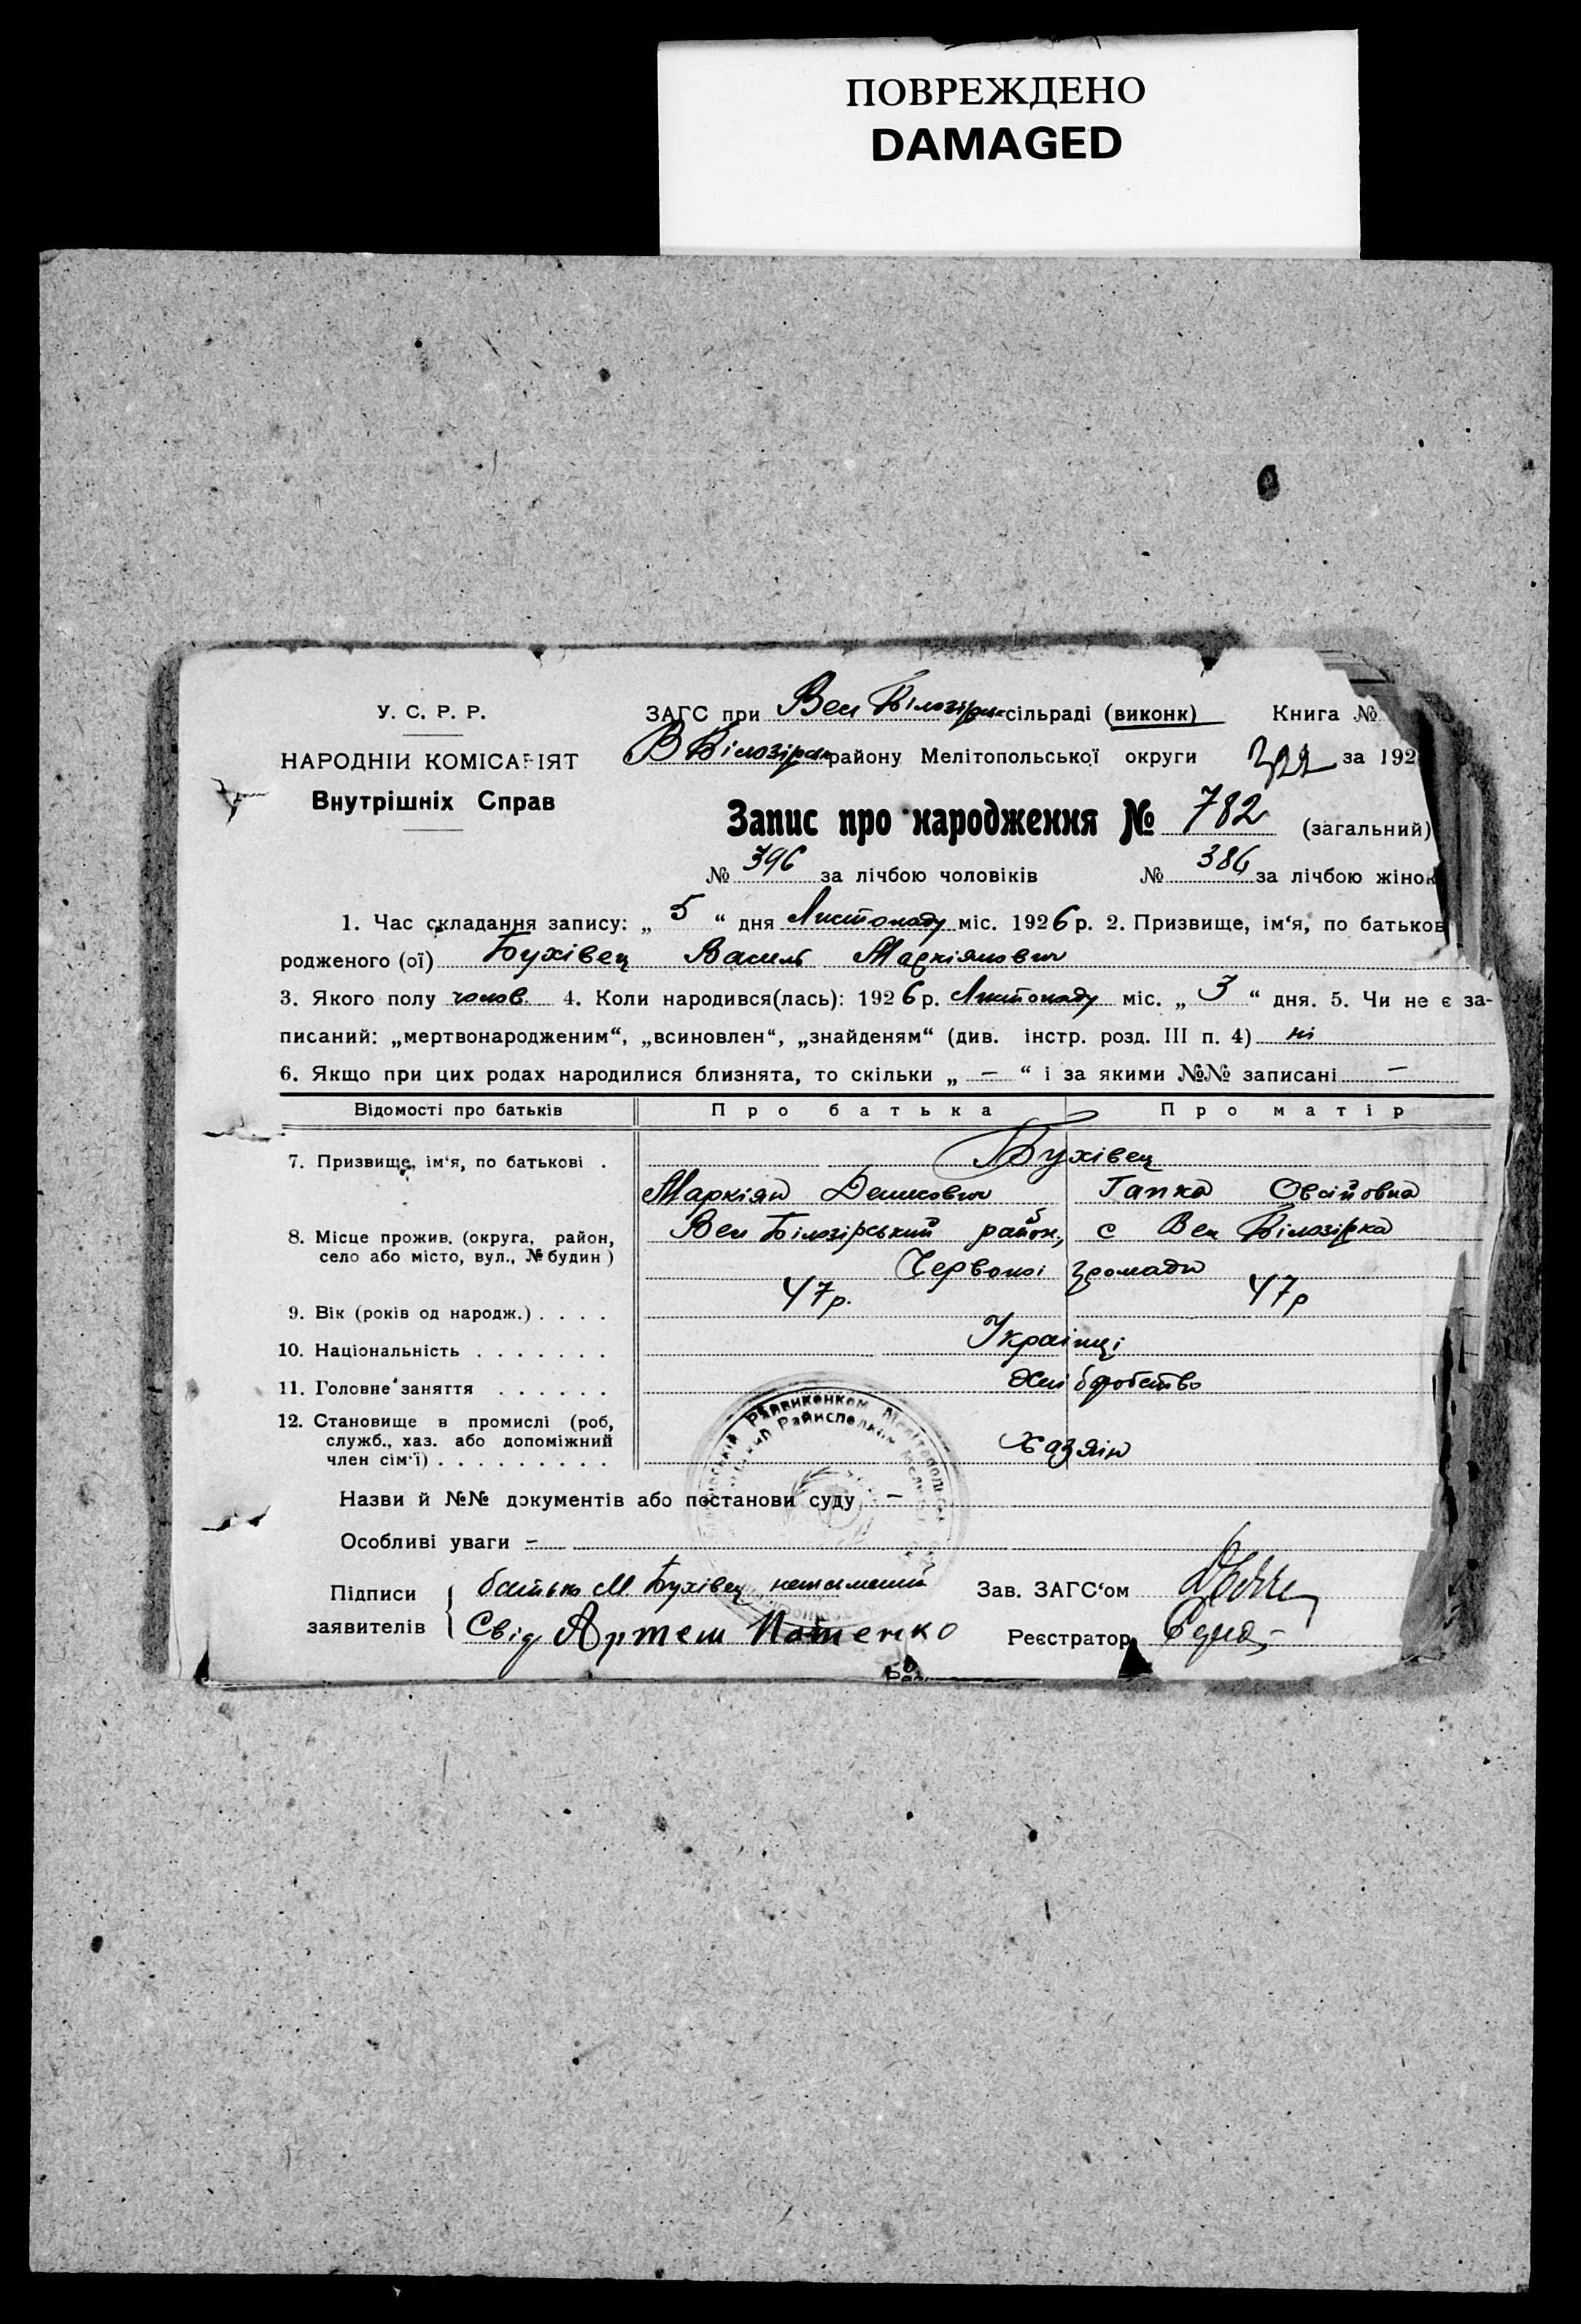 ПОВРЕЖДЕНО
DAMAGED
У. С. Р. Р.
НАРОДНІЙ КОМІСАРІЯТ
Внутрішніх Справ
ЗАГС при Вел Білозірск сільраді (виконк) Книга №
В Білозірск району Мелітопольської округи за 192
Запис про народження № 782 (загальний)
№ 396 за лічбою чоловіків № 386 за лічбою жінок
1. Час складання запису: „ 5 “ дня Листопаду міс. 1926 р. 2. Призвище, ім‘я, по батьков
родженого (ої) Бухівец Василь Маркіянович
3. Якого полу чолов. 4. Коли народився(лась): 1926 р. Листопаду міс. „ 3 “ дня. 5. Чи не є за-
писаний: „мертвонародженим“, „всиновлен“, „знайденям“ (див. інстр. розд. III п. 4) ні
6. Якщо при цих родах народилися близнята, то скільки „ — “ і за якими №№ записані —
Відомості про батьків Про батька Про матір
7. Призвище, ім‘я, по батькові . Бухівец
Маркіян Денисович Гапка Овсійовна
8. Місце прожив. (округа, район, село або місто, вул., № будин) Вел Білозірський район, с Вел Білозірка
Червоної громади
9. Вік (років од народж.) . . . . 47 р. 47 р
10. Національність . . . . . . . Українці
11. Головне заняття . . . . . . Хліборобство
12. Становище в промислі (роб,
служб., хаз. або допоміжний
член сім‘ї) . . . . . . . . . Хазяін
Назви й №№ документів або постанови суду —
Особливі уваги —
Підписи заявителів батько М. Бухівец неписьмений
Свід Артем Потенко
Зав. ЗАГС‘ом
Реєстратор